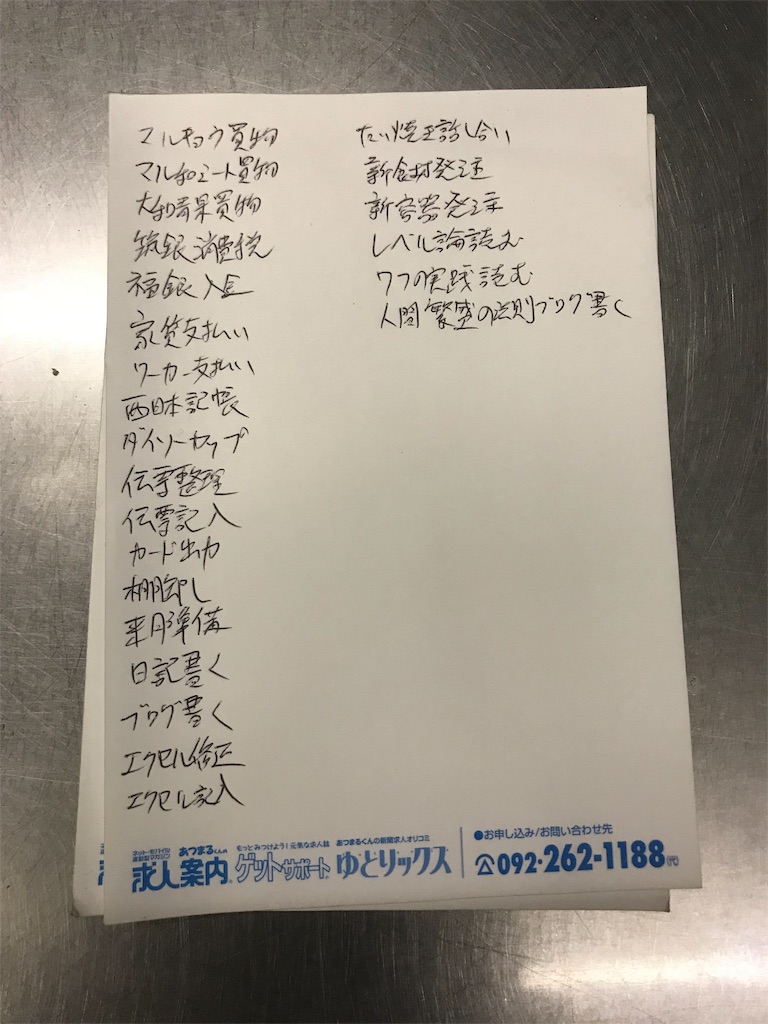 マルキョウ買物
マルチョミート買物
大和青果買物
筑銀消費税
福銀入金
家賃支払い
ワーカー支払い
西日本記帳
ダイソーカップ
伝票整理
伝票記入
カード出力
棚卸し
来月準備
日記書く
ブログ書く
エクセル修正
エクセル記入
たい焼き話し合い
新食材発注
新容器発注
レベル論読む
7つの実践読む
人間繁盛の法則ブログ書く
ネット・モバイル
連動型マガジン
あつまるくんの
求人案内
もっとみつけよう!元気な求人誌
ゲットサポート
あつまるくんの新聞求人オリコミ
ゆどりックス
●お申し込み/お問い合わせ先
092・262-1188(代)